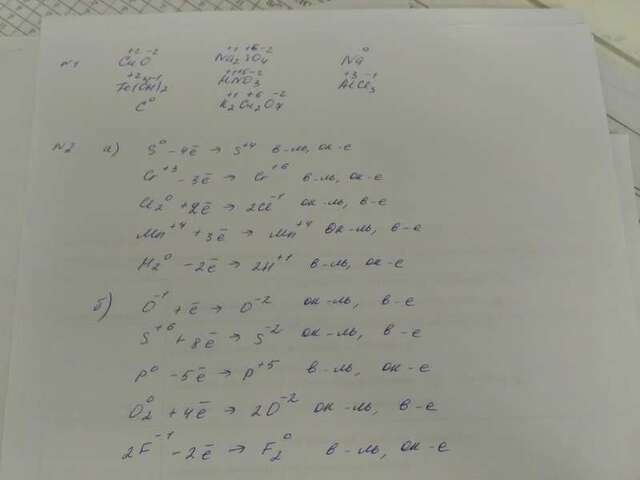 N1 Cu⁺²O⁻² Na₂⁺¹S⁺⁶O₄⁻² Na⁰
Fe⁺²(OH)₂⁻¹ H⁺¹N⁺⁵O₃⁻² Al⁺³Cl₃⁻¹
C⁰ K₂⁺¹Cr₂⁺⁶O₇⁻²
N2 а) S⁰ - 4ē → S⁺⁴ в-ль, ок-е
Cr⁺³ - 3ē → Cr⁺⁶ в-ль, ок-е
Cl₂⁰ + 2ē → 2Cl⁻¹ ок-ль, в-е
Mn⁺⁴ + 3ē → Mn⁺⁴ ок-ль, в-е
H₂⁰ - 2ē → 2H⁺¹ в-ль, ок-е
б) O⁻¹ + ē → O⁻² ок-ль, в-е
S⁺⁶ + 8ē → S⁻² ок-ль, в-е
P⁰ - 5ē → P⁺⁵ в-ль, ок-е
O₂⁰ + 4ē → 2O⁻² ок-ль, в-е
2F⁻¹ - 2ē → F₂⁰ в-ль, ок-е